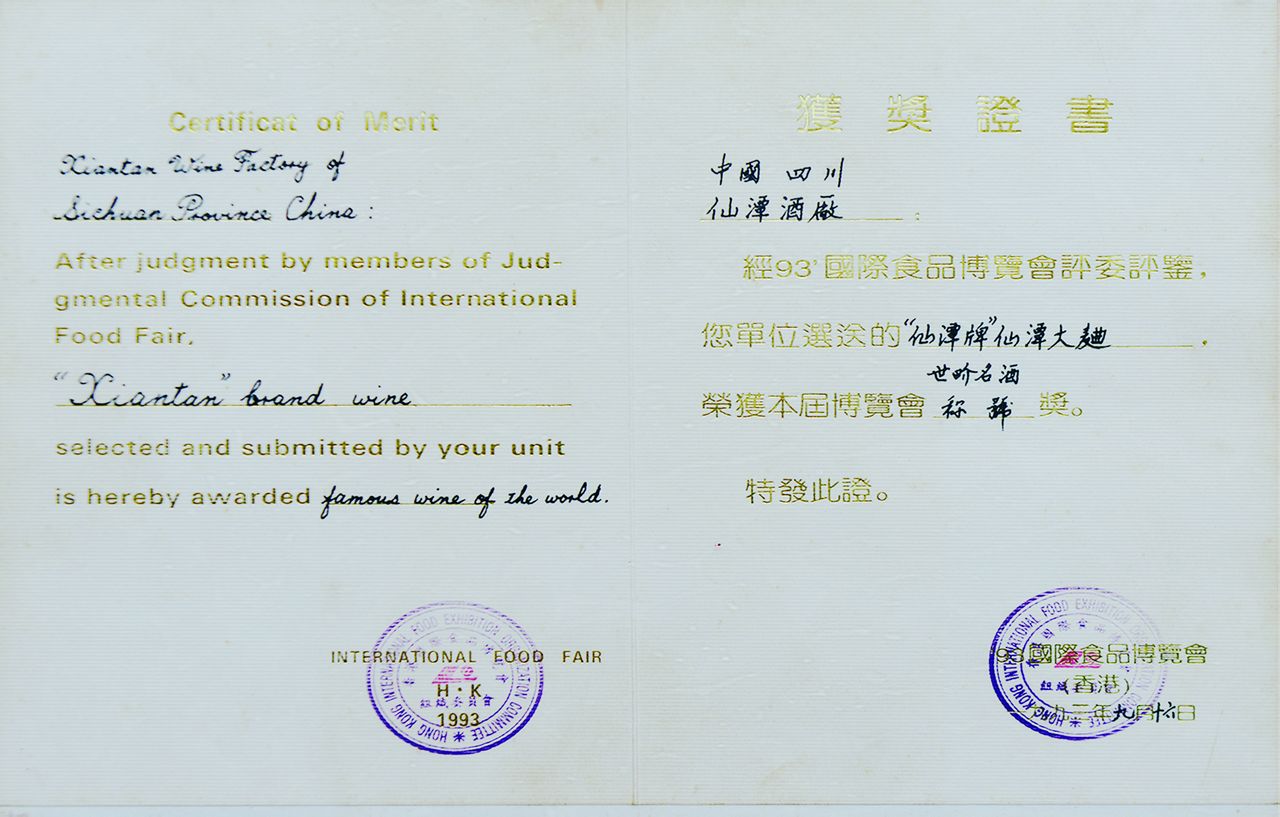 Certificat of Merit
Xiantan Wine Factory of
Sichuan Province China:
After judgment by members of Jud-
gmental Commission of International
Food Fair,
"Xiantan" brand wine
selected and submitted by your unit
is hereby awarded famous wine of the world.
INTERNATIONAL FOOD FAIR
H·K
1993
HONG KONG INTERNATIONAL FOOD EXHIBITION ORGANIZATION COMMITTEE
組織委員會
獲獎證書
中國 四川
仙潭酒廠:
經93'國際食品博覽會評委評鑒,
您單位選送的"仙潭牌"仙潭大麯,
世界名酒
榮獲本屆博覽會 称號 獎。
特發此證。
93'國際食品博覽會
(香港)
一九九三年九月十六日
HONG KONG INTERNATIONAL FOOD EXHIBITION
組織委員會